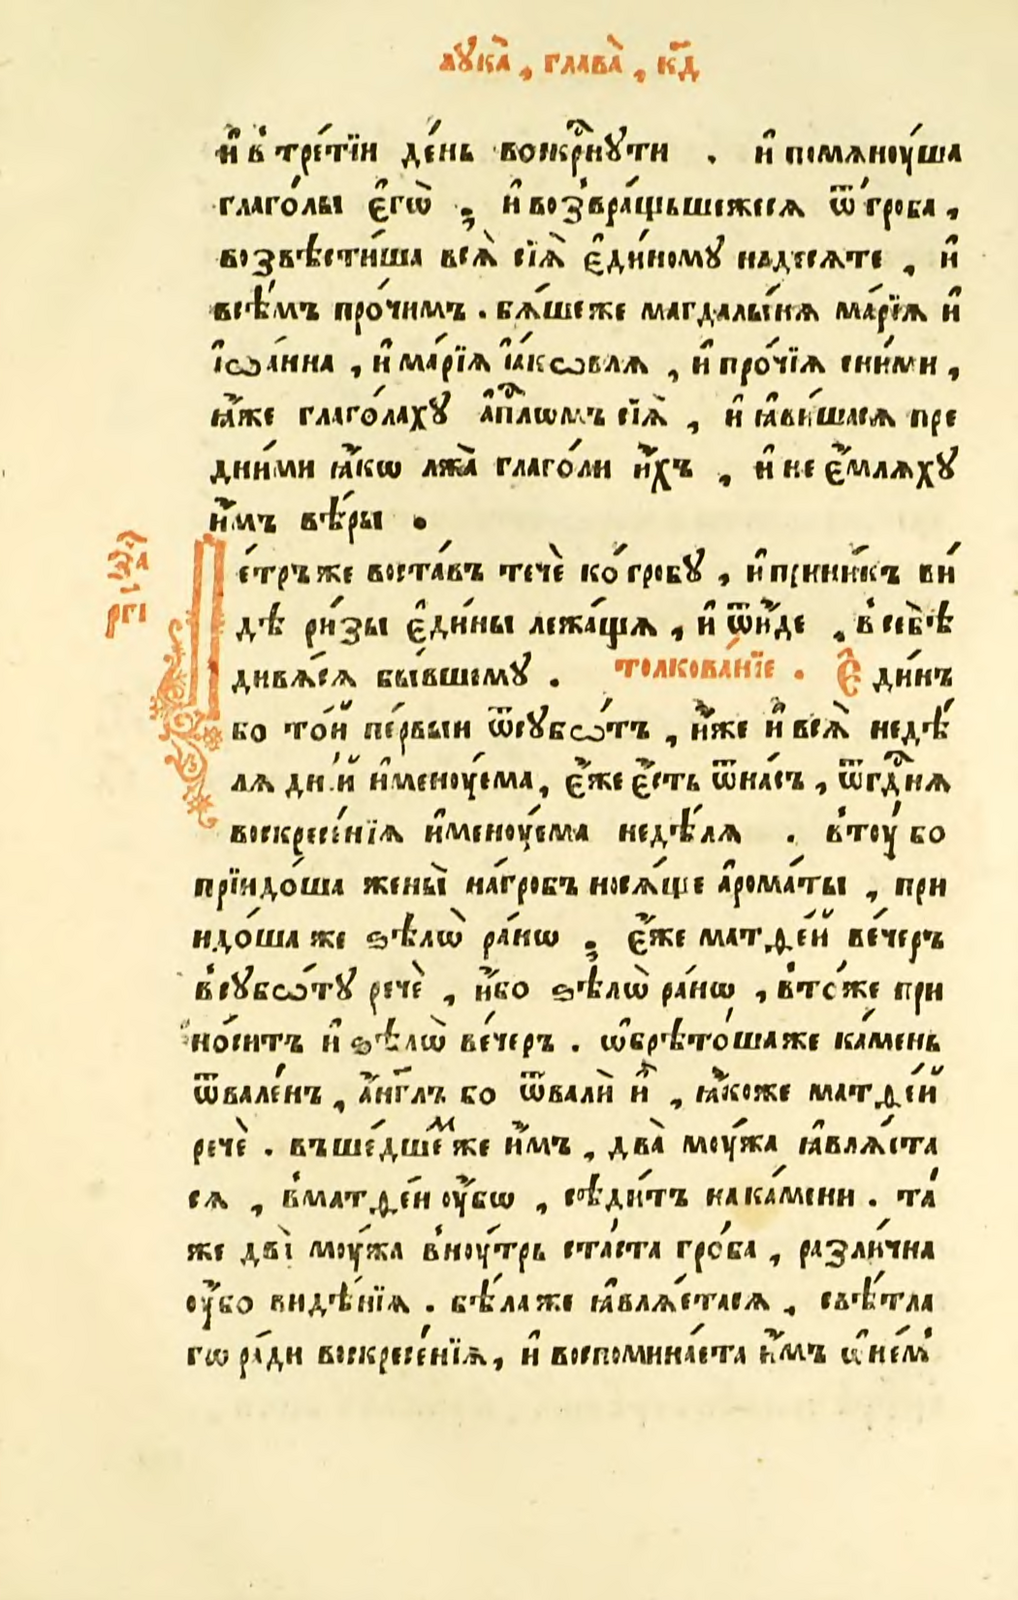 лꙋка̀, глава̀, к҃д
и҆ в҆ тре́тїи де́нь воскрⷭ҇нꙋти . и҆ помѧноу́ша
глаго́лы є҆гѡ̀ ; и҆ возвра́щьшежесѧ ѿ гро́ба,
возвѣсти́ша всѧ̀ сїѧ̀ є҆ди́номꙋ надесѧте, и҆
всѣ́мъ про́чимъ. бѧ́шеже магдалы́ни мрї́ѧ и҆
і҆ѡа́нна, и҆ марі́ѧ і҆а́кѡвлѧ, и҆ про́чїѧ сни́ми,
ꙗ҆́же глаго́лахꙋ а҆пⷭ҇лѡмъ сїѧ̀, и҆ ꙗ҆ви́шасѧ пре
дни́ми ꙗ҆́кѡ лжа̀ глаго́ли и҆́хъ, и҆ не є҆́млѧхꙋ
и҆́мъ вѣ́ры .
Пе́тръже воста́въ течѐ ко́ гробꙋ, и҆ прини́къ ви́
дѣ ри́зы є҆ди́ны лежа́щѧ, и҆ ѿи́де, в҆ себѣ̀
дивѧ́сѧ бы́вшемꙋ. толкова́нїе. Є҆ди́нъ
бо то́й пе́рвыи ѿ сꙋбѡ́тъ, и҆́же и҆ всѧ̀ недѣ́
лѧ дні́й и҆менꙋ́ема, є҆́же є҆́сть ѿ на́съ, ѿ гдⷭ҇нѧ
воскресе́нїѧ и҆меноу́ема недѣ́лѧ . в҆ тоу́ бо
прїидо́ша жены̀ на́гробъ носѧ́ще а҆рома́ты, при
идо́ша же ѕѣлѡ̀ ра́нѡ ; є҆́же матѳе́й ве́черъ
в҆ сꙋбѡ́тꙋ речѐ, и҆́бо ѕѣ́лѡ̀ ра́нѡ, в҆ то́же при
но́ситъ и҆ ѕѣ́лѡ̀ ве́черъ. ѡ҆брѣто́шаже ка́мень
ѿвале́нъ, а҆́гг҃лъ бо ѿвалѝ и҆̀, ꙗ҆́коже матѳе́й
речѐ. въше́дшеⷨ же и҆́мъ, два̀ моу́жа ꙗ҆влѧ́ста
сѧ, в҆ матѳе́и оу҆́бѡ, сѣди́тъ на ка́мени. та́
же два̀ моу́жа в҆ноу́трь ста́ста гро́ба, разли́чна
оу҆́бо видѣ́нїѧ. бѣ́лаже ꙗ҆влѧ́етасѧ, свѣ́тла
гѡ ра́ди воскресе́нїѧ, и҆ воспомина́ета и҆́мъ